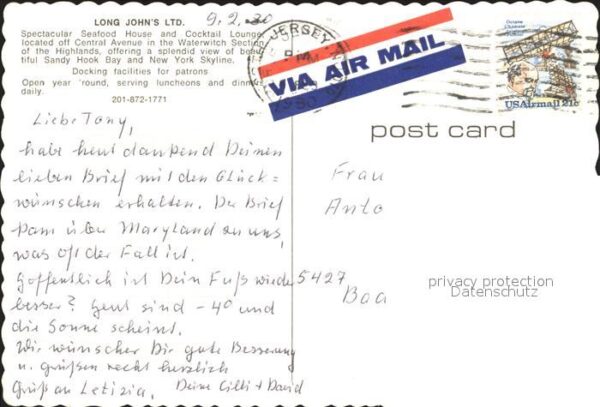 LONG JOHN'S LTD.
9.2.80
Spectacular Seafood House and Cocktail Lounge
located off Central Avenue in the Waterwitch Section
of the Highlands, offering a splendid view of beau-
tiful Sandy Hook Bay and New York Skyline.
Docking facilities for patrons
Open year 'round, serving luncheons and dinner
daily.
201-872-1771
JERSEY
PM
1980
VIA AIR MAIL
Octave Chanute
USAirmail 21c
post card
Liebe Tony,
habe heut dankend Deinen
lieben Brief mit den Glück=
wünschen erhalten. Der Brief
kam über Maryland zu uns,
was oft der Fall ist.
Hoffentlich ist Dein Fuß wieder
besser? Heut sind -4° und
die Sonne scheint.
Wir wünschen Dir gute Besserung
u. grüßen recht herzlich
Gruß an Letizia. Deine Cilli + David
Frau
Anto
5427
Baa
privacy protection
Datenschutz